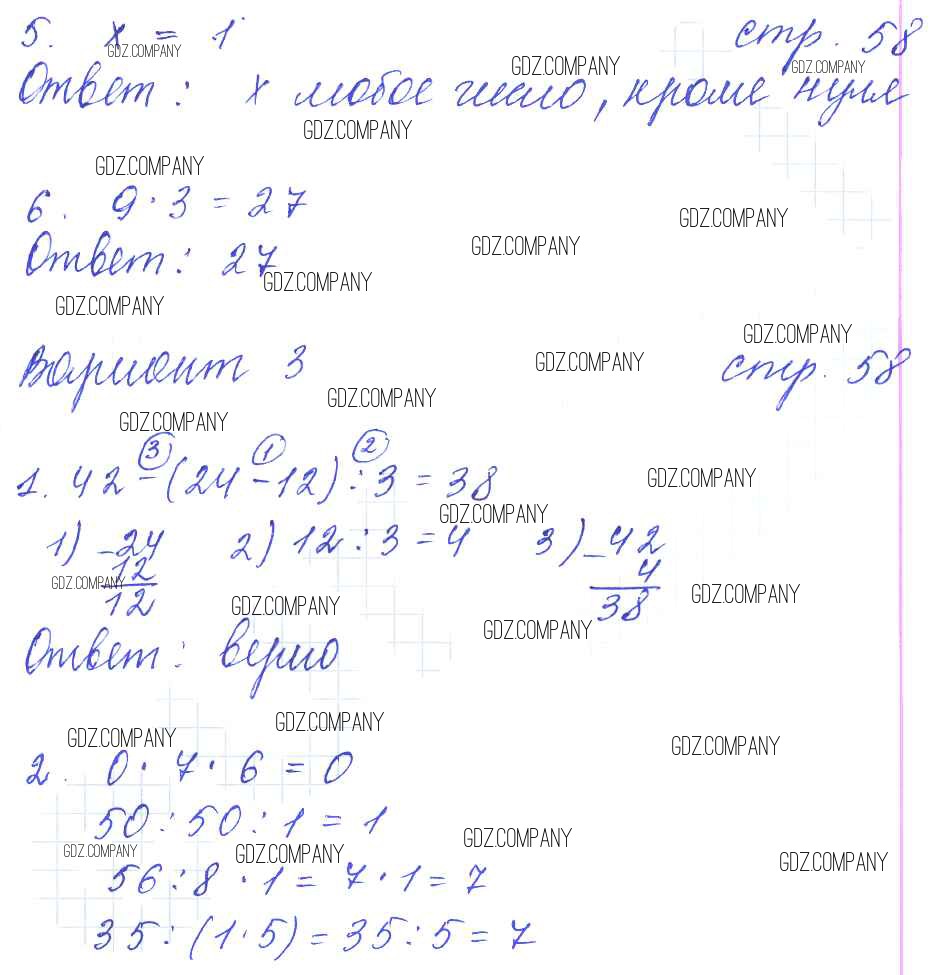 5. x = 1 стр. 58
GDZ.COMPANY
GDZ.COMPANY GDZ.COMPANY
Ответ: x любое число, кроме нуля
GDZ.COMPANY
GDZ.COMPANY
6. 9 · 3 = 27
GDZ.COMPANY
GDZ.COMPANY
Ответ: 27
GDZ.COMPANY
GDZ.COMPANY
GDZ.COMPANY
Вариант 3 стр. 58
GDZ.COMPANY
GDZ.COMPANY
GDZ.COMPANY
3 1 2
1. 42 - (24 - 12) : 3 = 38
GDZ.COMPANY
GDZ.COMPANY
1) -24 2) 12 : 3 = 4 3) -42
12 4
GDZ.COMPANY GDZ.COMPANY
12 38
GDZ.COMPANY
GDZ.COMPANY
Ответ: верно
GDZ.COMPANY
GDZ.COMPANY GDZ.COMPANY
2. 0 · 7 · 6 = 0
50 : 50 : 1 = 1
GDZ.COMPANY
GDZ.COMPANY GDZ.COMPANY GDZ.COMPANY
56 : 8 · 1 = 7 · 1 = 7
35 : (1 · 5) = 35 : 5 = 7